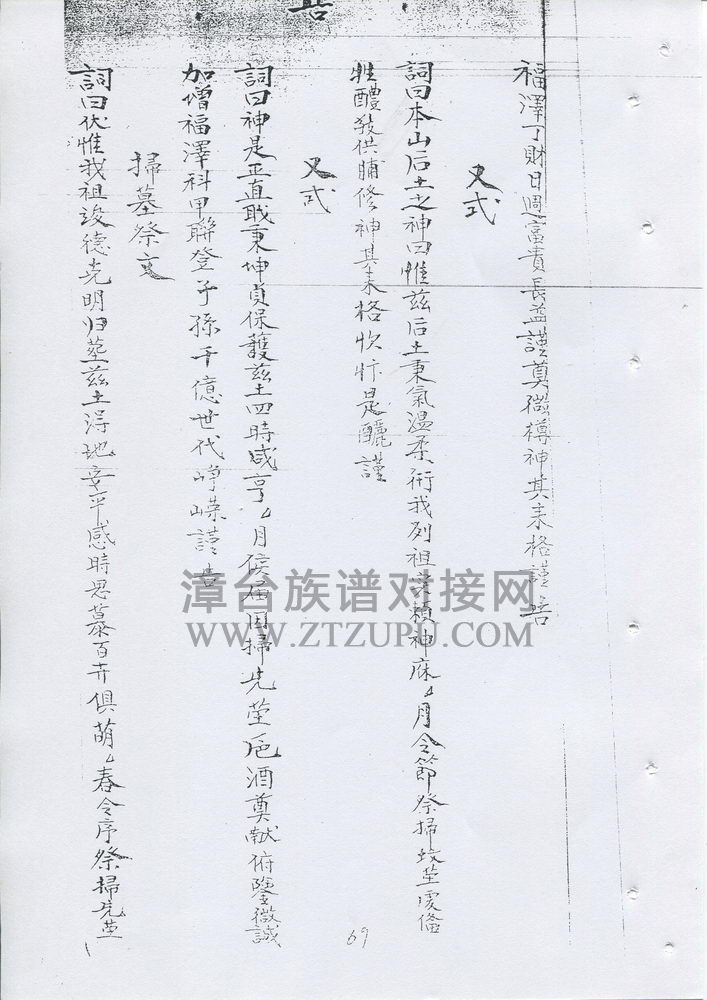 告
福澤丁財日週富貴長益謹奠微樽神其来格謹告
又式
詞曰本山后土之神曰惟兹后土秉氣温柔術我列祖荣賴神庥厶月令節祭掃坟塋虔俻
牲醴殽供脯修神其来格忻忭是釃謹
又式
詞曰神是正直戢秉坤貞保護兹土四時咸亨厶月侯届因掃先塋卮酒奠献俯鑒微誠
加增福澤科甲聯登子孫千億世代崢嶸謹告
掃墓祭文
詞曰伏惟我祖竣德克明归塟兹土淂地安平感時思慕百卉俱萌厶春令序祭掃先塋
69
漳台族谱对接网
WWW.ZTZUPU.COM